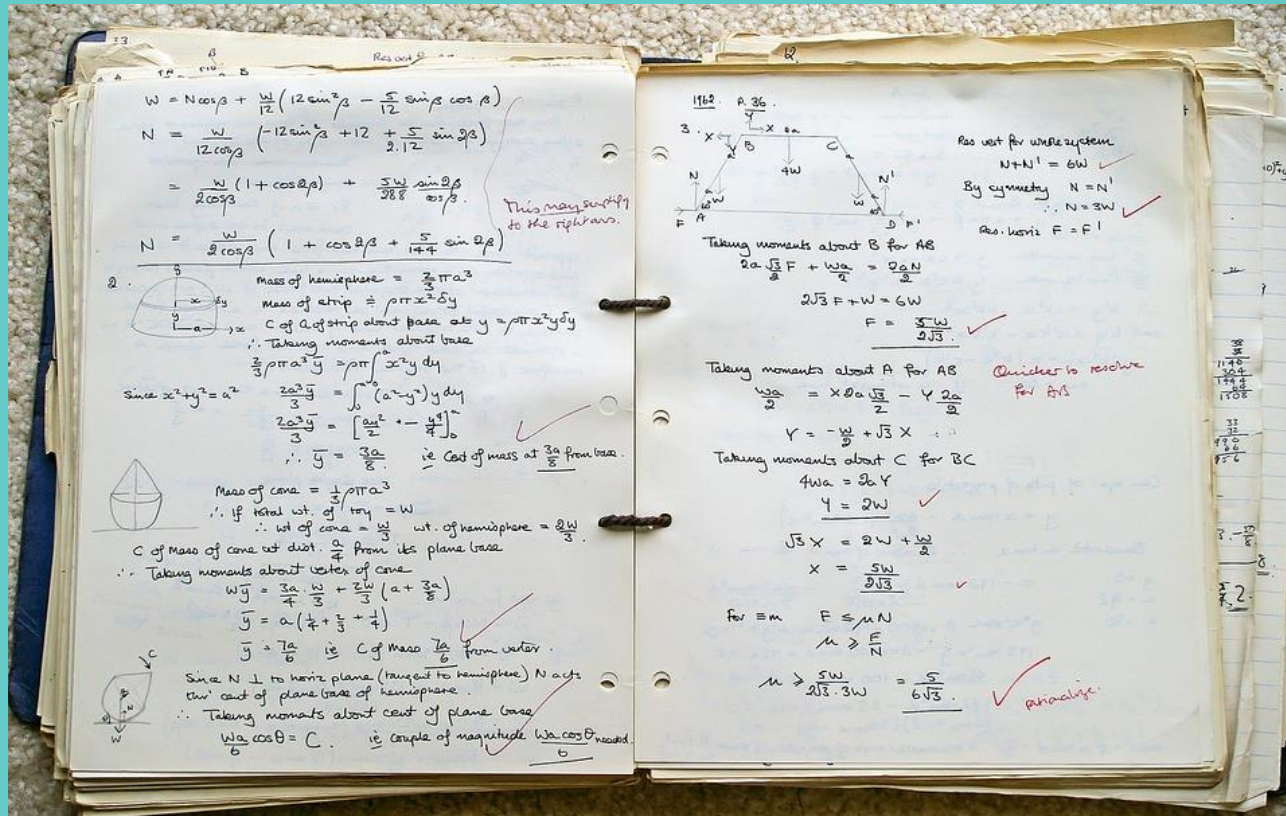 33
Res vert
W = N cosβ + W/12 (12 sin²β − 5/12 sinβ cosβ)
N = W/12cosβ (−12 sin²β + 12 + 5/2.12 sin 2β)
= W/2cosβ (1 + cos2β) + 5W/288 sin2β/cosβ.
This may simplify
to the right ans.
N = W/2cosβ (1 + cos2β + 5/144 sin 2β)
2.
Mass of hemisphere = 2/3 πa³
Mass of strip ≑ ρπx²δy
C of G of strip about base at y = ρπx²yδy
∴ Taking moments about base
2/3 ρπa³ȳ = ρπ∫x²y dy
since x²+y² = a² 2a³ȳ/3 = ∫(a²−y²) y dy
2a³ȳ/3 = [ay²/2 − y⁴/4]
∴ ȳ = 3a/8. ie Cent of mass at 3a/8 from base.
Mass of cone = 1/3 ρπa³
∴ if total wt. of toy = W
∴ wt of cone = W/3 wt. of hemisphere = 2W/3.
C of Mass of cone at dist. a/4 from its plane base
∴ Taking moments about vertex of cone
Wȳ = 3a/4 . W/3 + 2W/3 (a + 3a/8)
ȳ = a(1/4 + 2/3 + 1/4)
ȳ = 7a/6 ie C of Mass 7a/6 from vertex.
Since N ⊥ to horiz plane (tangent to hemisphere) N acts
thr' cent of plane base of hemisphere.
∴ Taking moments about cent of plane base
Wa/6 cosθ = C. ie couple of magnitude Wa cosθ/6 needed.
12
1962. P. 36.
3.
X Y X 2a
B C
4W
N W W N'
F A D F'
Res vert for whole system
N+N' = 6W
By symmetry N = N'
∴ N = 3W
Res. horiz F = F'
Taking moments about B for AB
2a √3/2 F + Wa/2 = 2aN/2
2√3 F + W = 6W
F = 5W/2√3.
Taking moments about A for AB
Quicker to resolve
for AB
Wa/2 = X2a√3/2 − Y 2a/2
Y = −W/2 + √3 X
Taking moments about C for BC
4Wa = 2aY
Y = 2W
√3 X = 2W + W/2
X = 5W/2√3
For ≡m F ≤ μN
μ ≥ F/N
μ ≥ 5W/2√3.3W = 5/6√3.
rationalize.